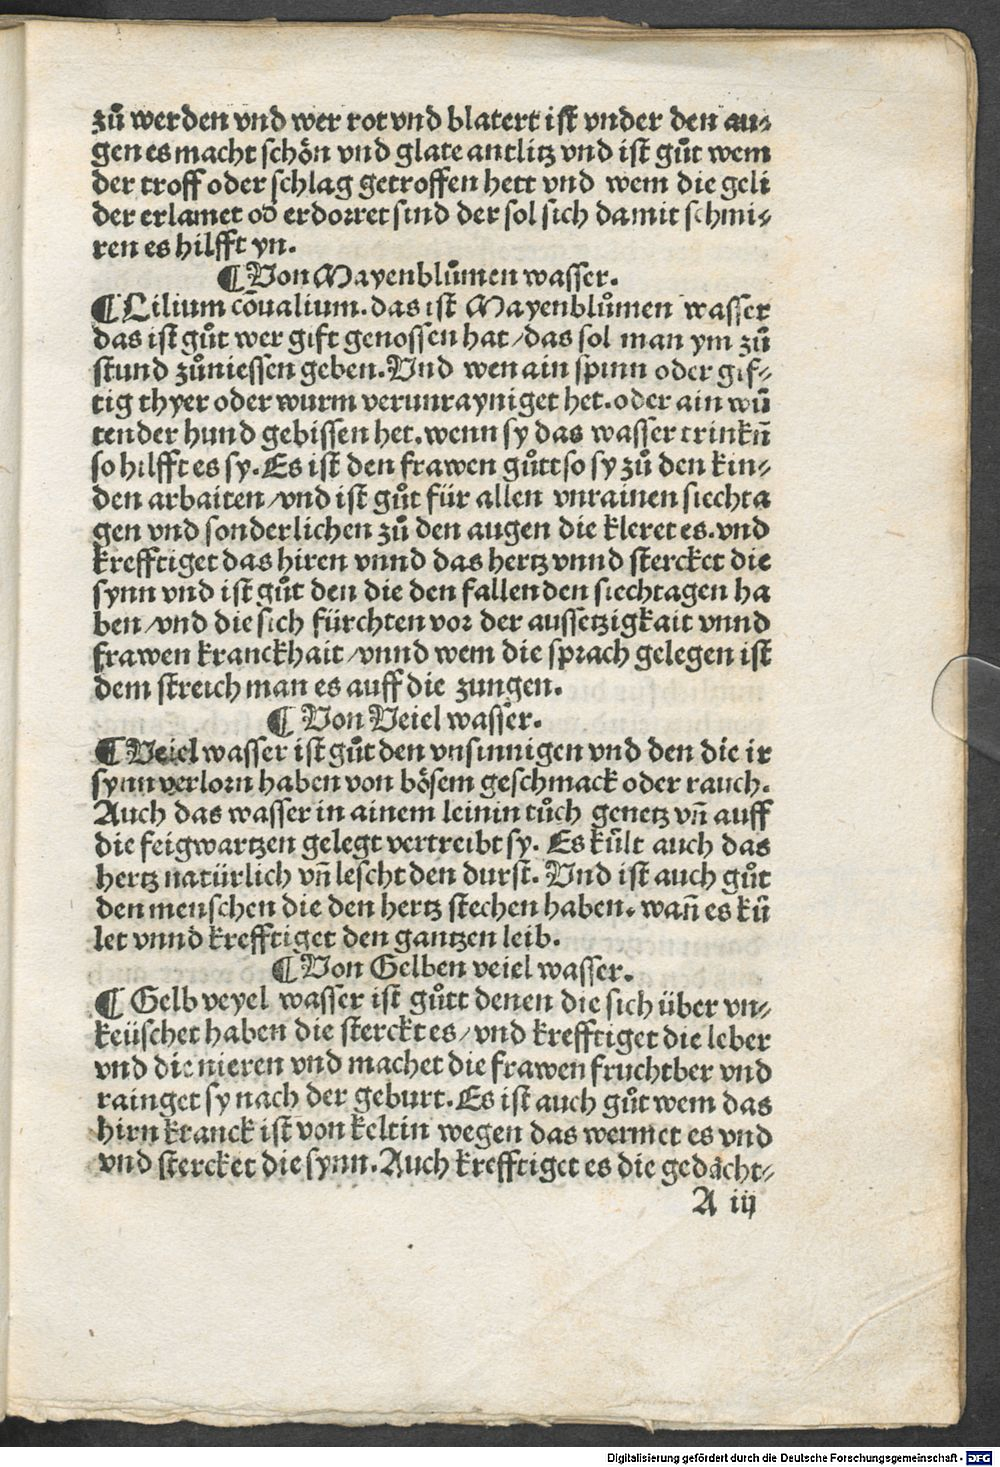 zů werden vnd wer rot vnd blatert ist vnder den au⸗
gen es macht schön vnd glate antlitz vnd ist gůt wem
der troff oder schlag getroffen hett vnd wem die geli
der erlamet od̕ erdorret sind der sol sich damit schmi⸗
ren es hilfft yn.
¶ Von Mayenblůmen wasser.
¶ Lilium cōualium. das ist Mayenblůmen wasser
das ist gůt wer gift genossen hat / das sol man ym zů
stund zůniessen geben. Vnd wen ain spinn oder gif⸗
tig thyer oder wurm verunrayniget het. oder ain wū
tender hund gebissen het. wenn sy das wasser trinkn̄
so hilfft es sy. Es ist den frawen gůtt so sy zů den kin⸗
den arbaiten / vnd ist gůt für allen vnrainen siechta
gen vnd sonderlichen zů den augen die kleret es. vnd
krefftiget das hiren vnnd das hertz vnnd stercket die
synn vnd ist gůt den die den fallenden siechtagen ha
ben / vnd die sich fürchten vor der aussetzigkait vnnd
frawen kranckhait / vnnd wem die sprach gelegen ist
dem streich man es auff die zungen.
¶ Von Veiel wasser.
¶ Veiel wasser ist gůt den vnsinnigen vnd den die ir
synn verlorn haben von bösem geschmack oder rauch.
Auch das wasser in ainem leinin tůch genetz vn̄ auff
die feigwartzen gelegt vertreibt sy. Es kůlt auch das
hertz natürlich vn̄ lescht den durst. Vnd ist auch gůt
den menschen die den hertz stechen haben. wan̄ es kü
let vnnd krefftiget den gantzen leib.
¶ Von Gelben veiel wasser.
¶ Gelb veyel wasser ist gůtt denen die sich über vn⸗
keüschet haben die sterckt es / vnd krefftiget die leber
vnd die nieren vnd machet die frawen fruchtber vnd
rainget sy nach der geburt. Es ist auch gůt wem das
hirn kranck ist von keltin wegen das wermet es vnd
vnd stercket die synn. Auch krefftiget es die gedächt⸗
A iij
Digitalisierung gefördert durch die Deutsche Forschungsgemeinschaft - DFG